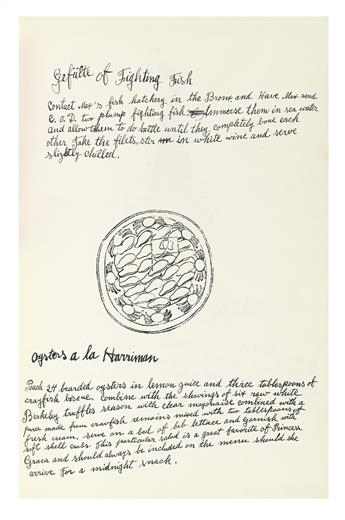 Gefülte of Fighting Fish
Contact Max's fish hatchery in the Bronx and Have Max send
C.O.D. two plump fighting fish. Immerse them in sea water
and allow them to do battle until they completely bone each
other. Take the filets, ster in in white wine and serve
slightly chilled.
Oysters a la Harriman
Poach 24 bearded oysters in lemon juice and three tablespoons of
crayfish bisque. combine with the shavings of six raw white
Berkeley truffles season with clear mayonaise combined with a
puree made from crawfish remains mixed with two tablespoons of
fresh cream. serve on a bed of bib lettuce and garnish with
soft shell crabs. This particular salad is a great favorite of Princess
Grace and should always be included on the menu should she
arrive for a midnight snack.